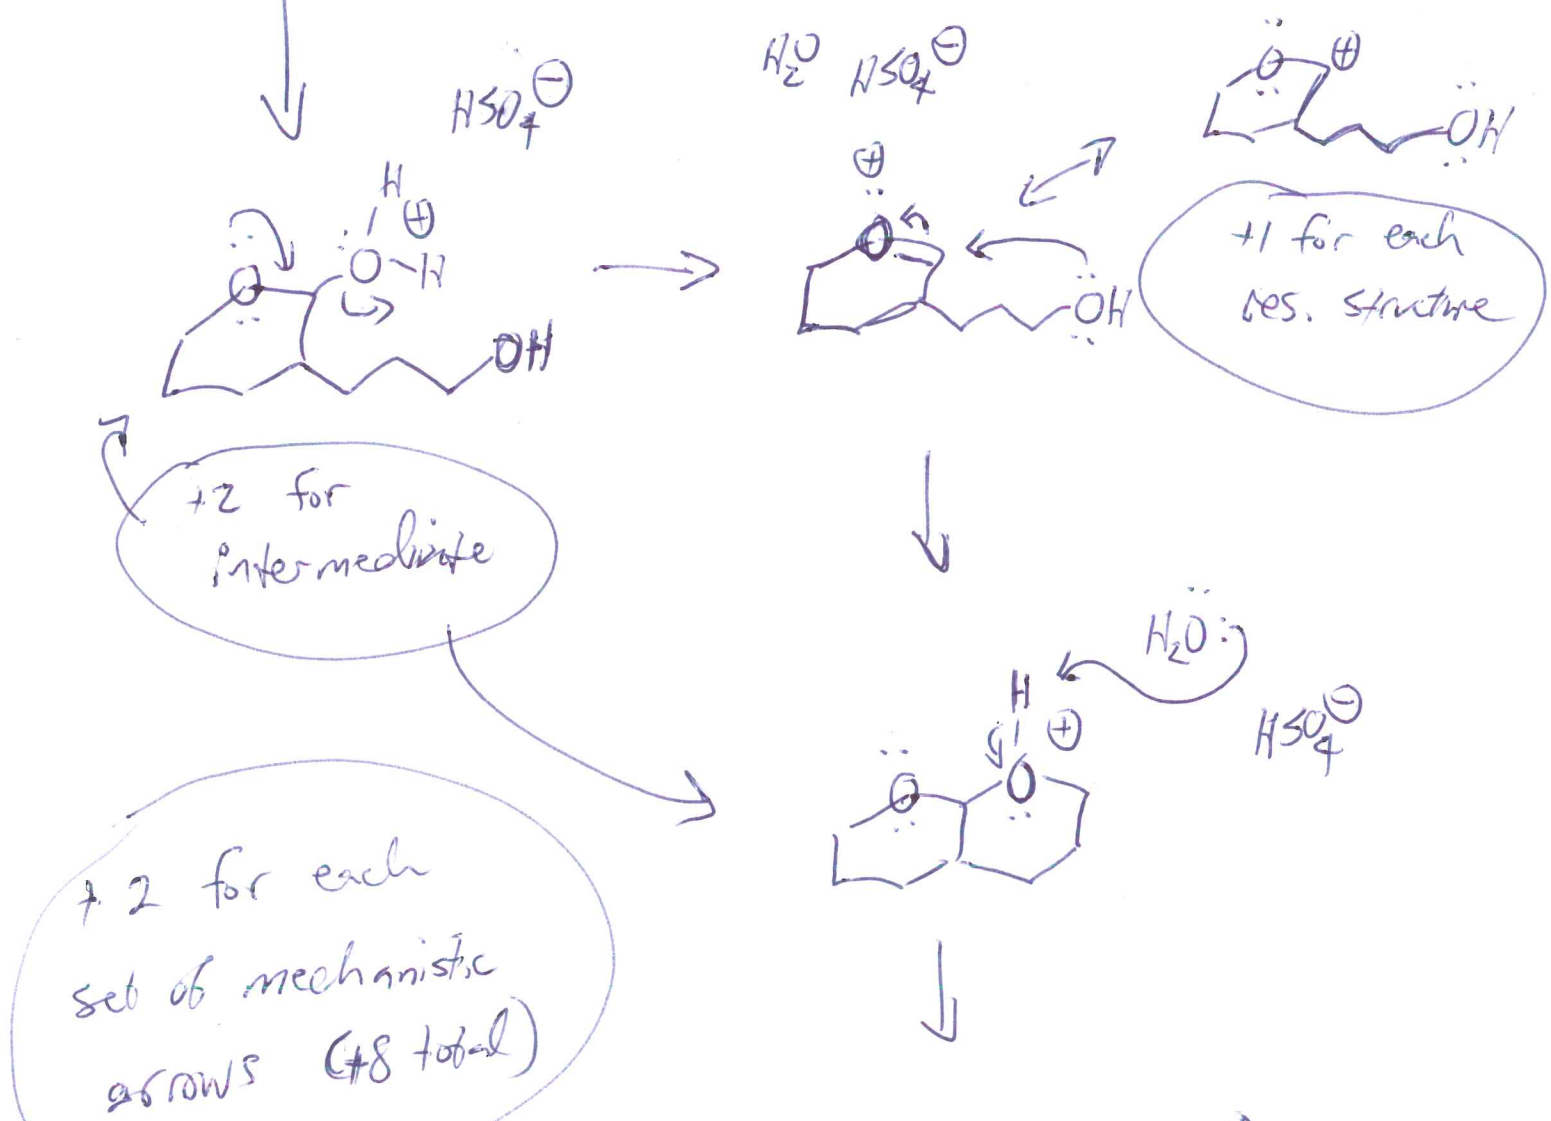 HSO₄⊖
H₂O HSO₄⊖
O ⊕
OH
H
⊕
O H
O
OH
⊕
O
OH
+1 for each
res. structure
+2 for
intermediate
H₂O:
H
⊕
HSO₄⊖
O O
+2 for each
set of mechanistic
arrows (+8 total)